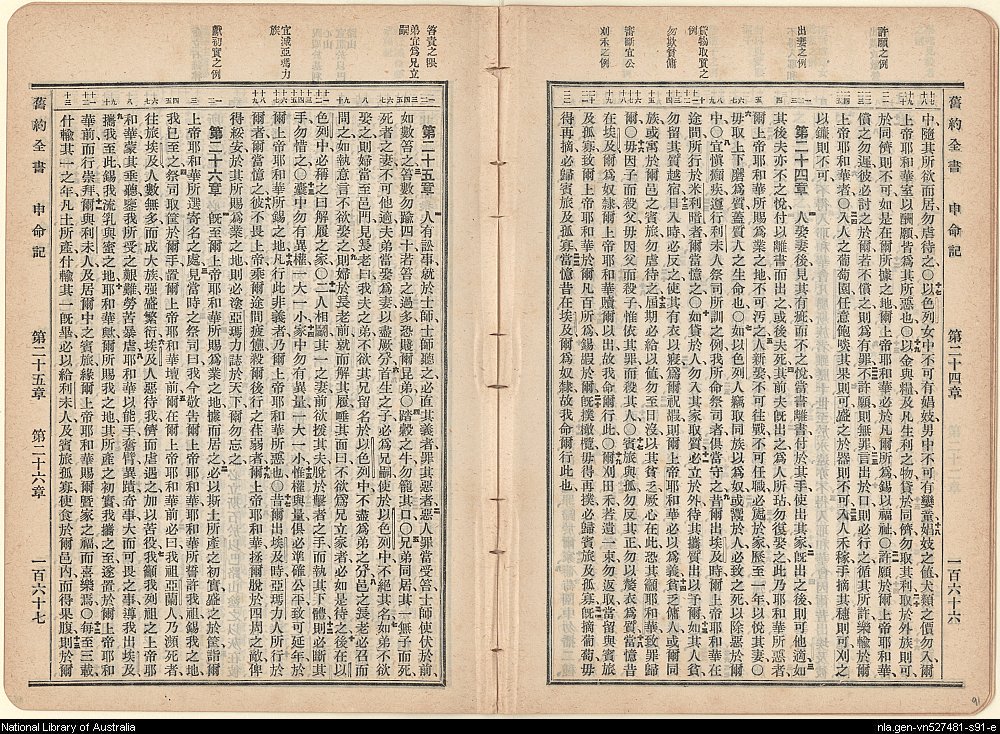 許願之例
出妻之例
貸物取質之例
勿欺貧傭
審斷宜公
刈禾之例
舊約全書 申命記 第二十四章 一百六十六
中隨其所欲而居勿虐待之〇以色列女中不可有娼妓男中不可有孌童娼妓之值犬類之價勿入爾
上帝耶和華室以酬願皆為其所惡也〇以金與糧及凡生利之物貸於同儕勿取其利取於外族則可
於同儕則不可如是在爾所據之地爾上帝耶和華必於凡爾所為錫以福祉〇許願於爾上帝耶和華
償之勿遲彼必討之於爾若不償之則為有罪不許願則無罪言出於口則必行之循其所許樂輸於爾
上帝耶和華者〇入人之葡萄園任意飽啖其果則可盛之於器則不可入人禾稼手摘其穗則可刈之
以鐮則不可
第二十四章 人娶妻後見其有疵而不之悅當書離書付於其手使出其家既出之後則可他適如
其後夫亦不之悅付以離書而出之或後夫死其前夫既出之為人所玷勿復娶之此乃耶和華所惡者
爾上帝耶和華所賜為業之地不可汚之人新娶不可往戰不可任職必處於家歷至一年以悅其妻〇
毋取上下磨為質蓋質人之生命也〇如以色列人竊取同族以為奴或鬻於人必致之死以除惡於爾
中〇宜慎癩疾遵行利未人祭司所訓之例我所命祭司者俱當守之昔爾出埃及時爾上帝耶和華在
途間所行於米利暗者爾當憶之〇如貸於人勿入其家取質必立於外待其攜質出以予爾如其人貧
勿留其質越宿日入時必反之使其有衣以寢為爾祝嘏則爾上帝耶和華必以為義〇貧乏傭人或爾同
族或寓於爾邑之賓旅勿虐待之屆期必給以值勿至日沒以其貧乏厥心在此恐其籲耶和華致罪歸
爾〇毋因子而殺父毋因父而殺子惟依其罪而殺其人〇賓旅與孤勿反其正勿以嫠衣為質當憶昔
在埃及爾為奴隸爾上帝耶和華贖爾以出故我命爾行此〇爾刈田禾若遺一束勿返取當留與賓旅
及孤寡致爾上帝耶和華於爾凡百所為錫以福祉爾既撲橄欖毋得再撲必歸賓旅及孤寡既摘葡萄毋
得再摘必歸賓旅及孤寡當憶昔在埃及爾為奴隸故我命爾行此
笞責之限
弟宜為兄立嗣
宜滅亞瑪力族
獻初實之例
第二十五章 人有訟事就於士師士師聽之必直其義者罪其惡者惡人罪當受笞士師使伏於前
如數笞之笞數勿踰四十若笞之過多恐賤爾兄弟〇踏穀之牛勿籠其口〇兄弟同居其一無子而死
死者之妻不可他適夫弟當娶為妻以盡厥分首生之子必為兄嗣使於以色列中不絕其名如弟不欲
娶之則婦當至邑門見長老曰我夫之弟不欲其兄留名於以色列中不盡為弟之分邑之長老必召而
問之如執意言不欲娶之則婦於長老前就而解其履唾其面曰不欲為兄立家者必如是待之後在以
色列中必稱之曰解履之家〇二人相鬭其一之妻前欲援其夫脫於擊者之手而執其下體則必斷其
手勿惜之〇囊中勿有異權一大一小家中勿有異量一大一小惟權與量俱必準確公平致可延年於
爾上帝耶和華所錫之地凡行此非義者乃爾上帝耶和華所惡也〇昔爾出埃及時亞瑪力人所行於
爾者爾當憶之彼不畏上帝乘爾途間疲憊殺爾後行之荏弱者爾上帝耶和華拯爾脫於四周之敵俾
得綏安於其所賜為業之地則必塗亞瑪力誌於天下爾勿忘之
第二十六章 既至爾上帝耶和華所賜為業之地據而居之必以斯土所產之初實盛之於筐詣爾
上帝耶和華所選寄名之處見當時之祭司曰我今敬告爾上帝耶和華耶和華所誓許我祖錫我之地
我已至之祭司取筐於爾手置爾上帝耶和華壇前爾在爾上帝耶和華前必曰我祖亞蘭人乃瀕死者
往旅埃及人數無多而成大族强盛繁衍埃及人惡待我儕而虐遇之加以苦役我籲我列祖之上帝耶
和華蒙其垂聽鑒我所受之艱難勞苦暴虐耶和華以能手奮臂異蹟奇事大而可畏之事導我出埃及
攜我至此錫我流乳與蜜之地耶和華歟爾所賜我之地其所產之初實我攜之至遂置於爾上帝耶和
華前而行崇拜爾與利未人及居爾中之賓旅緣爾上帝耶和華賜爾曁家之福而喜樂焉〇每至三載
什輸其一之年凡土所產什輸其一既畢必以給利未人及賓旅孤寡使食於爾邑內而得果腹則於爾
舊約全書 申命記 第二十五章 第二十六章 一百六十七
91
National Library of Australia
nla.gen-vn527481-s91-e